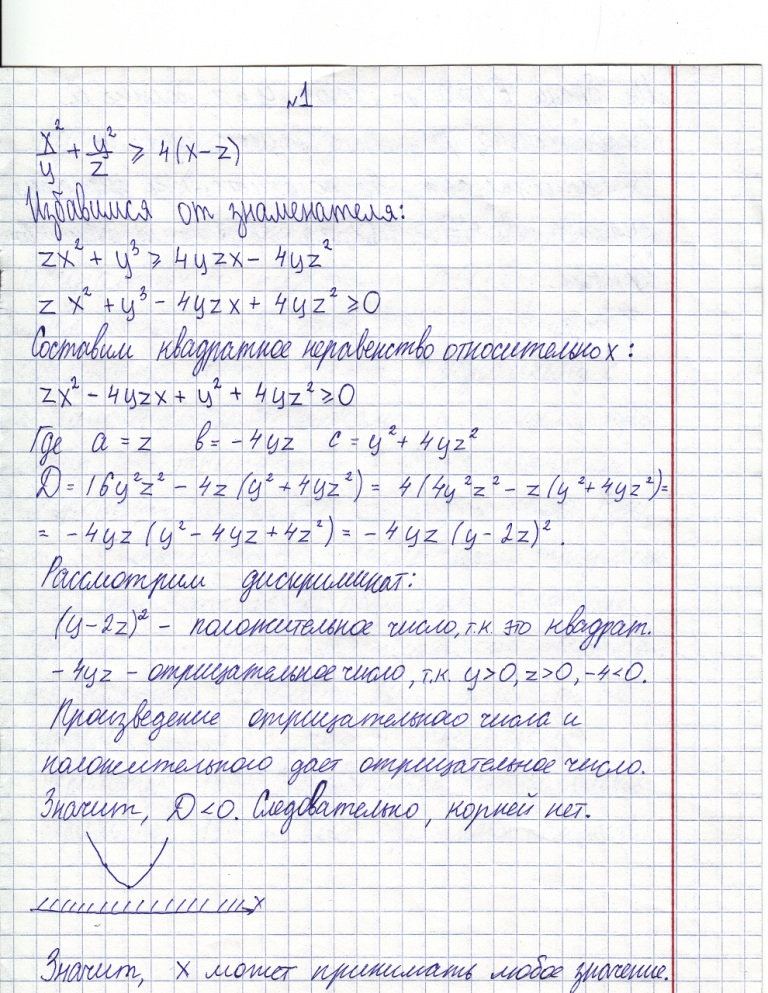 №1
x²/y + y²/z ⩾ 4(x-z)
Избавимся от знаменателя:
zx² + y³ ⩾ 4yzx - 4yz²
z x² + y³ - 4yzx + 4yz² ⩾ 0
Составим квадратное неравенство относительно x:
zx² - 4yzx + y² + 4yz² ⩾ 0
Где a = z в = -4yz c = y² + 4yz²
D = 16y²z² - 4z (y² + 4yz²) = 4 (4y²z² - z (y² + 4yz²) =
= -4yz (y² - 4yz + 4z²) = -4yz (y - 2z)².
Рассмотрим дискриминат:
(y - 2z)² - положительное число, т.к. это квадрат.
-4yz - отрицательное число, т.к. y>0, z>0, -4<0.
Произведение отрицательного числа и
положительного дает отрицательное число.
Значит, D < 0. Следовательно, корней нет.
x
Значит, x может принимать любое значение.